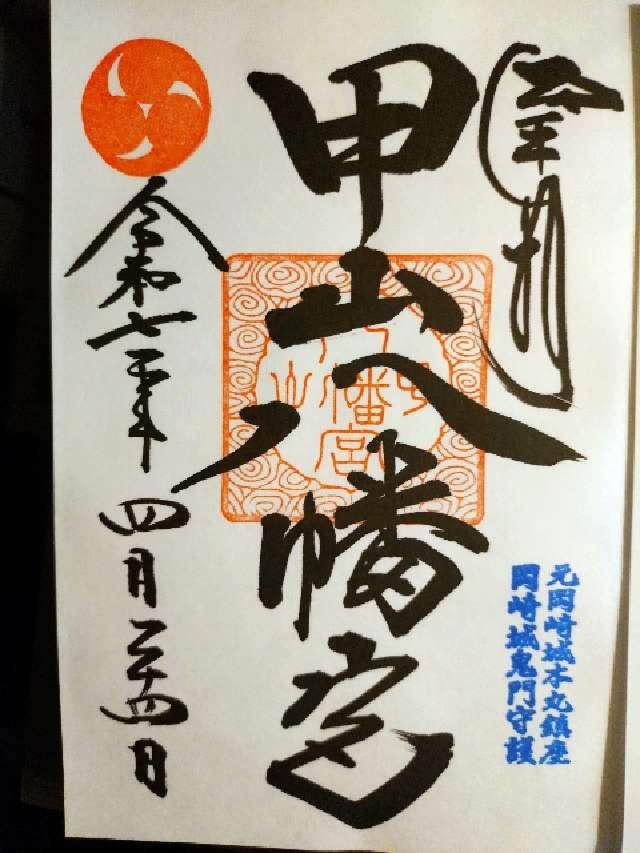 奉拝
甲山八幡宮
八幡宮
甲
山
元岡崎城本丸鎮座
岡崎城鬼門守護
令和七年
四月二十四日